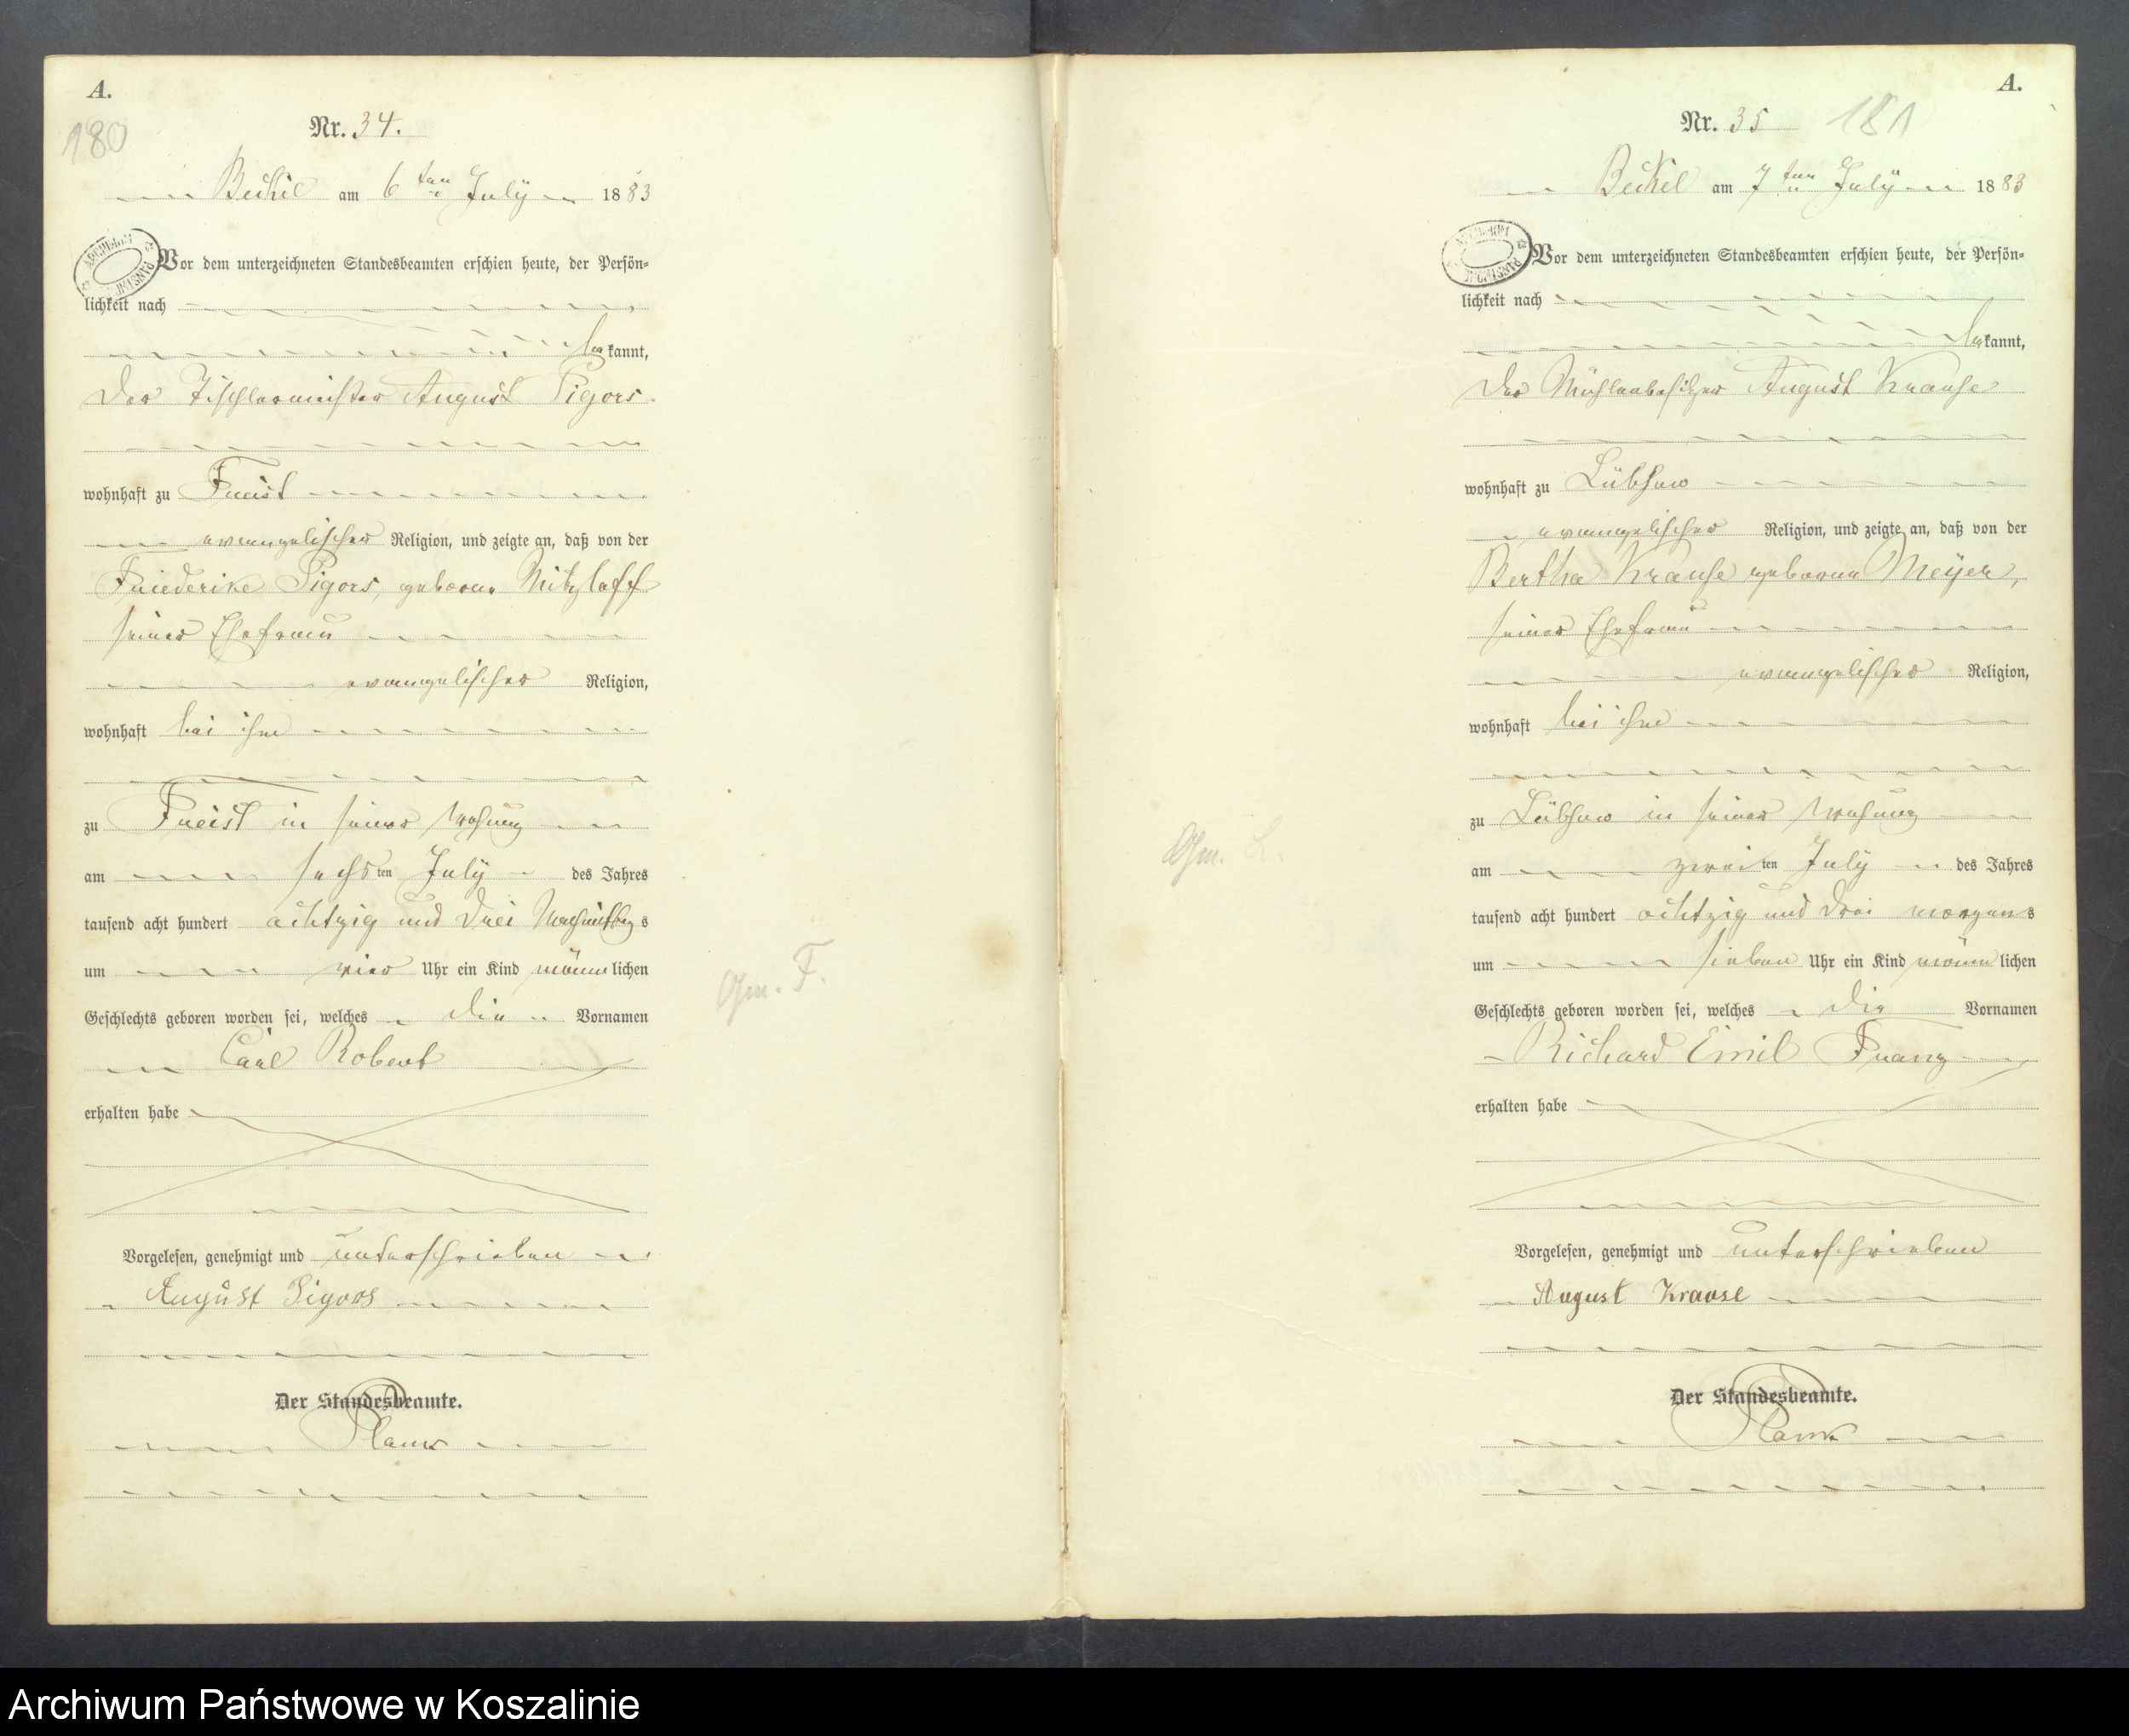 A.
180
Nr. 34.
Beckel am 6 ten July 1883
Vor dem unterzeichneten Standesbeamten erschien heute, der Persön-
lichkeit nach
bekannt,
der Tischlermeister August Pigors
wohnhaft zu Freist
evangelischer Religion, und zeigte an, daß von der
Friederike Pigors, geborne Mitzlaff
seiner Ehefrau
evangelischer Religion,
wohnhaft bei ihm
zu Freist in seiner Wohnung
am sechsten July des Jahres
tausend acht hundert achtzig und drei Nachmittags
um vier Uhr ein Kind männlichen
Geschlechts geboren worden sei, welches die Vornamen
Carl Robert
erhalten habe
Vorgelesen, genehmigt und unterschrieben
August Pigors
Der Standesbeamte.
Gem. F.
A.
Nr. 35 181
Beckel am 7 ten July 1883
Vor dem unterzeichneten Standesbeamten erschien heute, der Persön-
lichkeit nach
bekannt,
der Mühlenbesitzer August Krause
wohnhaft zu Lübzow
evangelischer Religion, und zeigte an, daß von der
Bertha Krause geborne Meyer,
seiner Ehefrau
evangelischer Religion,
wohnhaft bei ihm
zu Lübzow in seiner Wohnung
am zweiten July des Jahres
tausend acht hundert achtzig und drei morgens
um sieben Uhr ein Kind männlichen
Geschlechts geboren worden sei, welches die Vornamen
Richard Emil Franz
erhalten habe
Vorgelesen, genehmigt und unterschrieben
August Krause
Der Standesbeamte.
Gem. L.
Archiwum Państwowe w Koszalinie